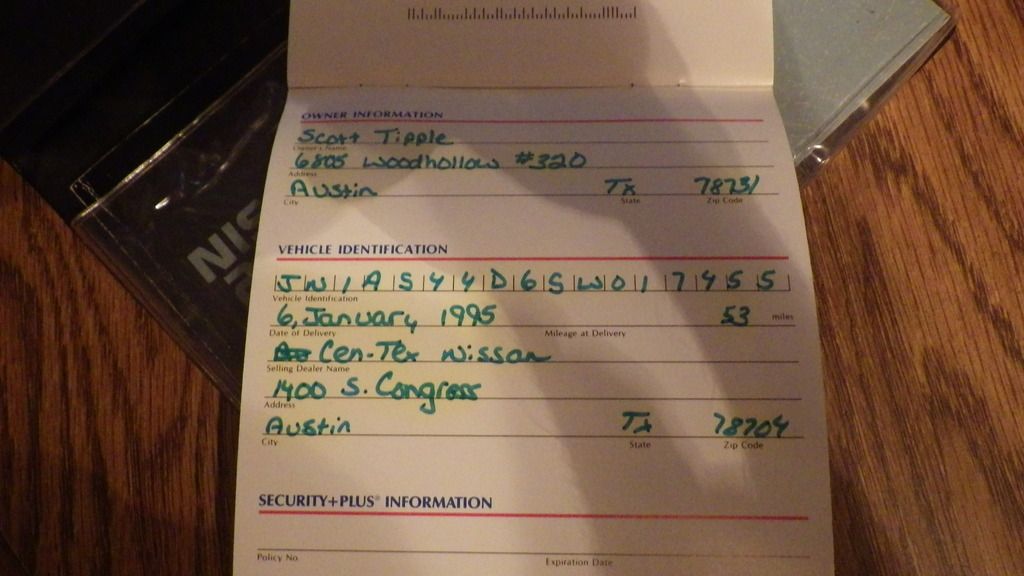 NIS
OWNER INFORMATION
Scott Tipple
Owner's Name
6805 Woodhollow #320
Address
Austin Tx 78731
City State Zip Code
VEHICLE IDENTIFICATION
JN1AS44D6SW017455
Vehicle Identification
6, January 1995 53 miles
Date of Delivery Mileage at Delivery
Cen-Tex Nissan
Selling Dealer Name
1400 S. Congress
Address
Austin Tx 78704
City State Zip Code
SECURITY+PLUS® INFORMATION
Policy No. Expiration Date